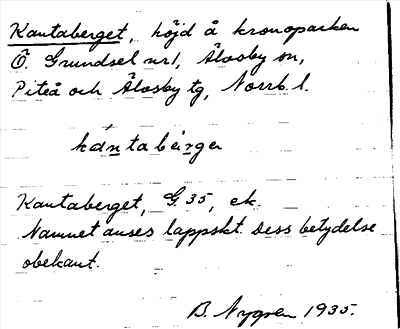 Kantaberget, höjd å kronoparken
Ö. Grundsel nr 1, Älvsby sn,
Piteå och Älvsby tg, Norrb. l.
kántabèrger
Kantaberget, G 35, ek.
Namnet anses lappskt. Dess betydelse
obekant.
B. Nygren 1935.